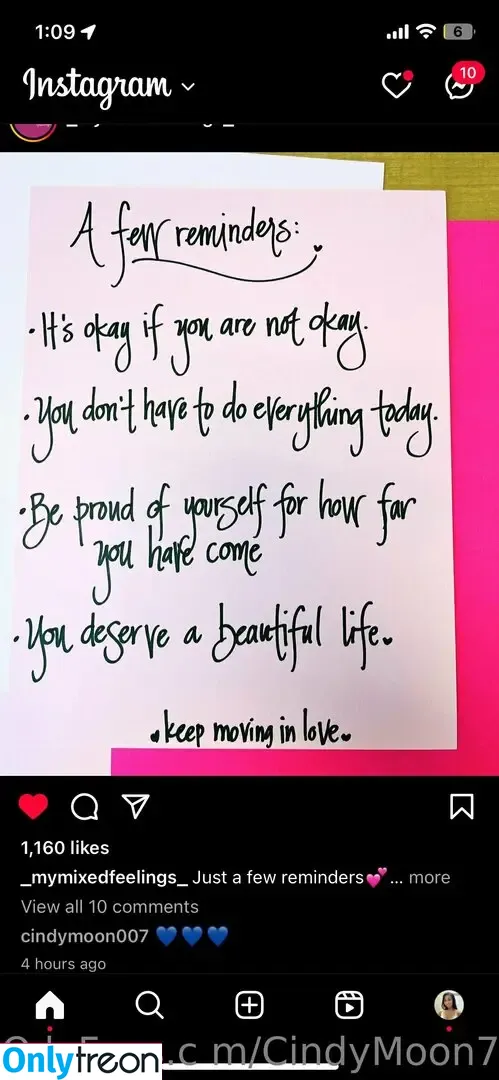 1:09
6
Instagram
10
A few reminders:
· It's okay if you are not okay.
· You don't have to do everything today.
· Be proud of yourself for how far
you have come
· You deserve a beautiful life.
keep moving in love
1,160 likes
_mymixedfeelings_ Just a few reminders💕... more
View all 10 comments
cindymoon007 💙💙💙
4 hours ago
m/CindyMoon7
Onlytreon